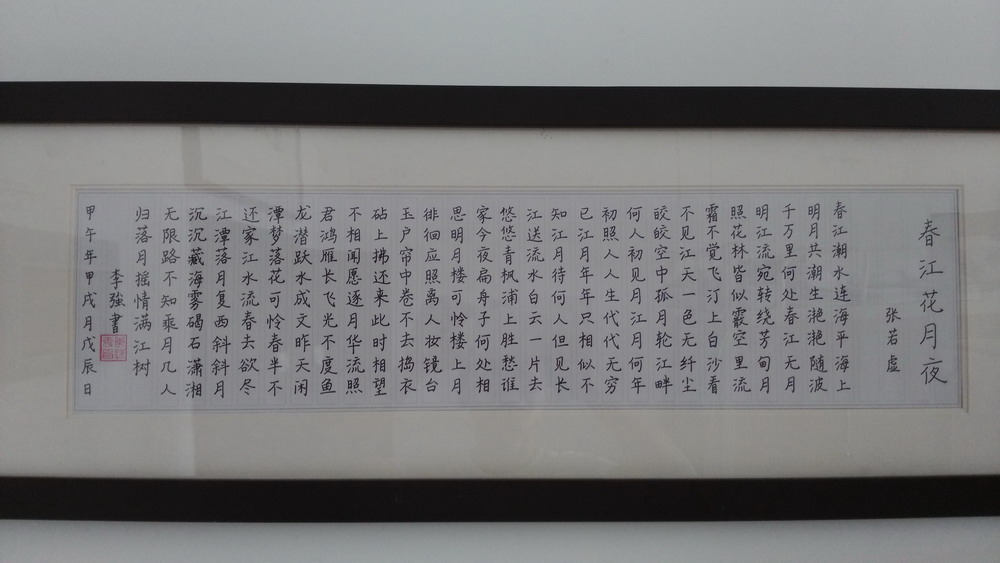 春江花月夜
张若虚
春江潮水连海平海上
明月共潮生滟滟随波
千万里何处春江无月
明江流宛转绕芳甸月
照花林皆似霰空里流
霜不觉飞汀上白沙看
不见江天一色无纤尘
皎皎空中孤月轮江畔
何人初见月江月何年
初照人人生代代无穷
已江月年年只相似不
知江月待何人但见长
江送流水白云一片去
悠悠青枫浦上胜愁谁
家今夜扁舟子何处相
思明月楼可怜楼上月
徘徊应照离人妆镜台
玉户帘中卷不去捣衣
砧上拂还来此时相望
不相闻愿逐月华流照
君鸿雁长飞光不度鱼
龙潜跃水成文昨天闲
潭梦落花可怜春半不
还家江水流春去欲尽
江潭落月复西斜斜月
沉沉藏海雾碣石潇湘
无限路不知乘月几人
归落月摇情满江树
李強書
甲午年甲戌月戊辰日